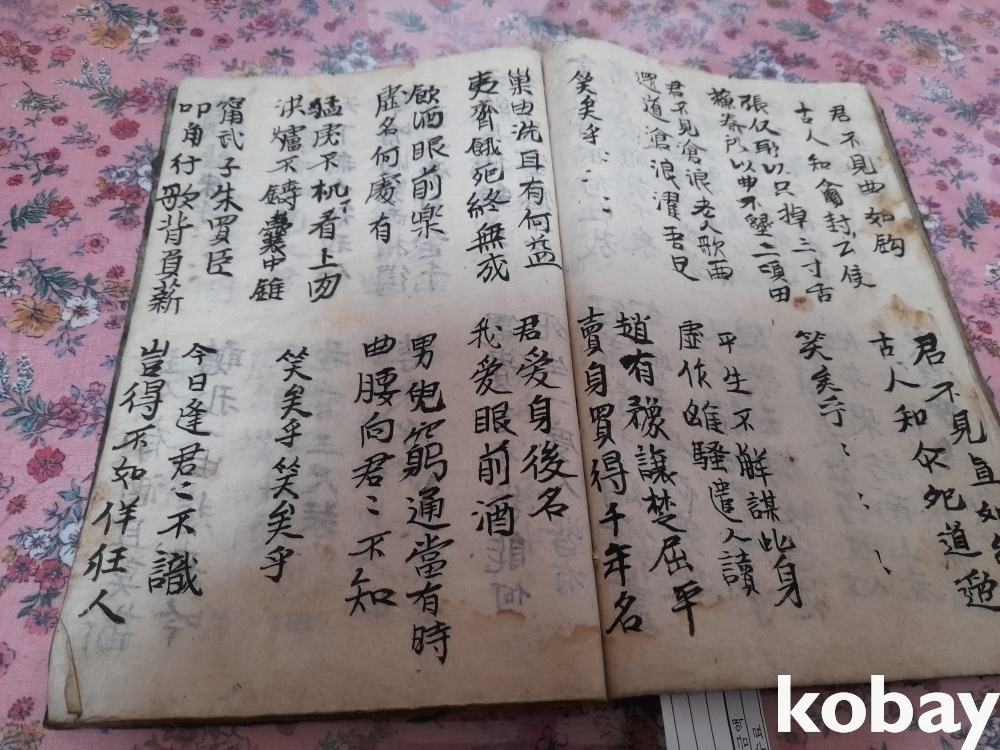 君不見曲如鈎
古人知爾封公侯
君不見直如
古人知尒死道邊
張仪所以只掉三寸舌
蘇秦所以不墾二頃田
笑矣乎ヽヽヽ
君不見滄浪老人歌
還道滄浪濯吾足
平生不解謀此身
虛作離騷遣人讀
笑矣乎ヽヽヽ
趙有豫讓楚屈平
賣身買得千年名
巢由洗耳有何益
夷齊餓死終無成
君愛身後名
我愛眼前酒
飲酒眼前樂
虛名何處有
男兒窮通當有時
曲腰向君ミ不知
猛虎不机看上肉
洪爐不鑄囊中錐
笑矣乎笑矣乎
甯武子朱買臣
叩角行歌背負薪
今日逢君ミ不識
豈得不如佯狂人
kobay